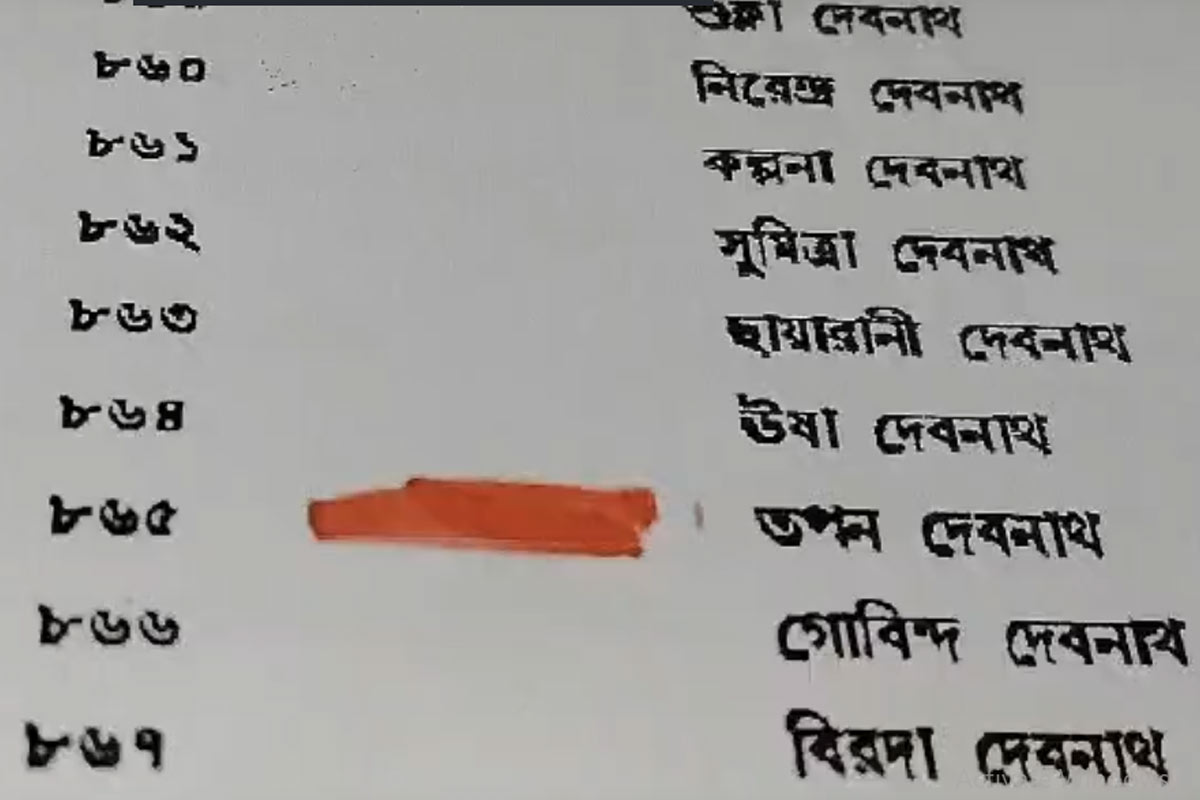 শুক্লা দেবনাথ
৮৬০ নিরেন্দ্র দেবনাথ
৮৬১ কল্পনা দেবনাথ
৮৬২ সুমিত্রা দেবনাথ
৮৬৩ ছায়ারানী দেবনাথ
৮৬৪ ঊষা দেবনাথ
৮৬৫ তপন দেবনাথ
৮৬৬ গোবিন্দ দেবনাথ
৮৬৭ বিরদা দেবনাথ